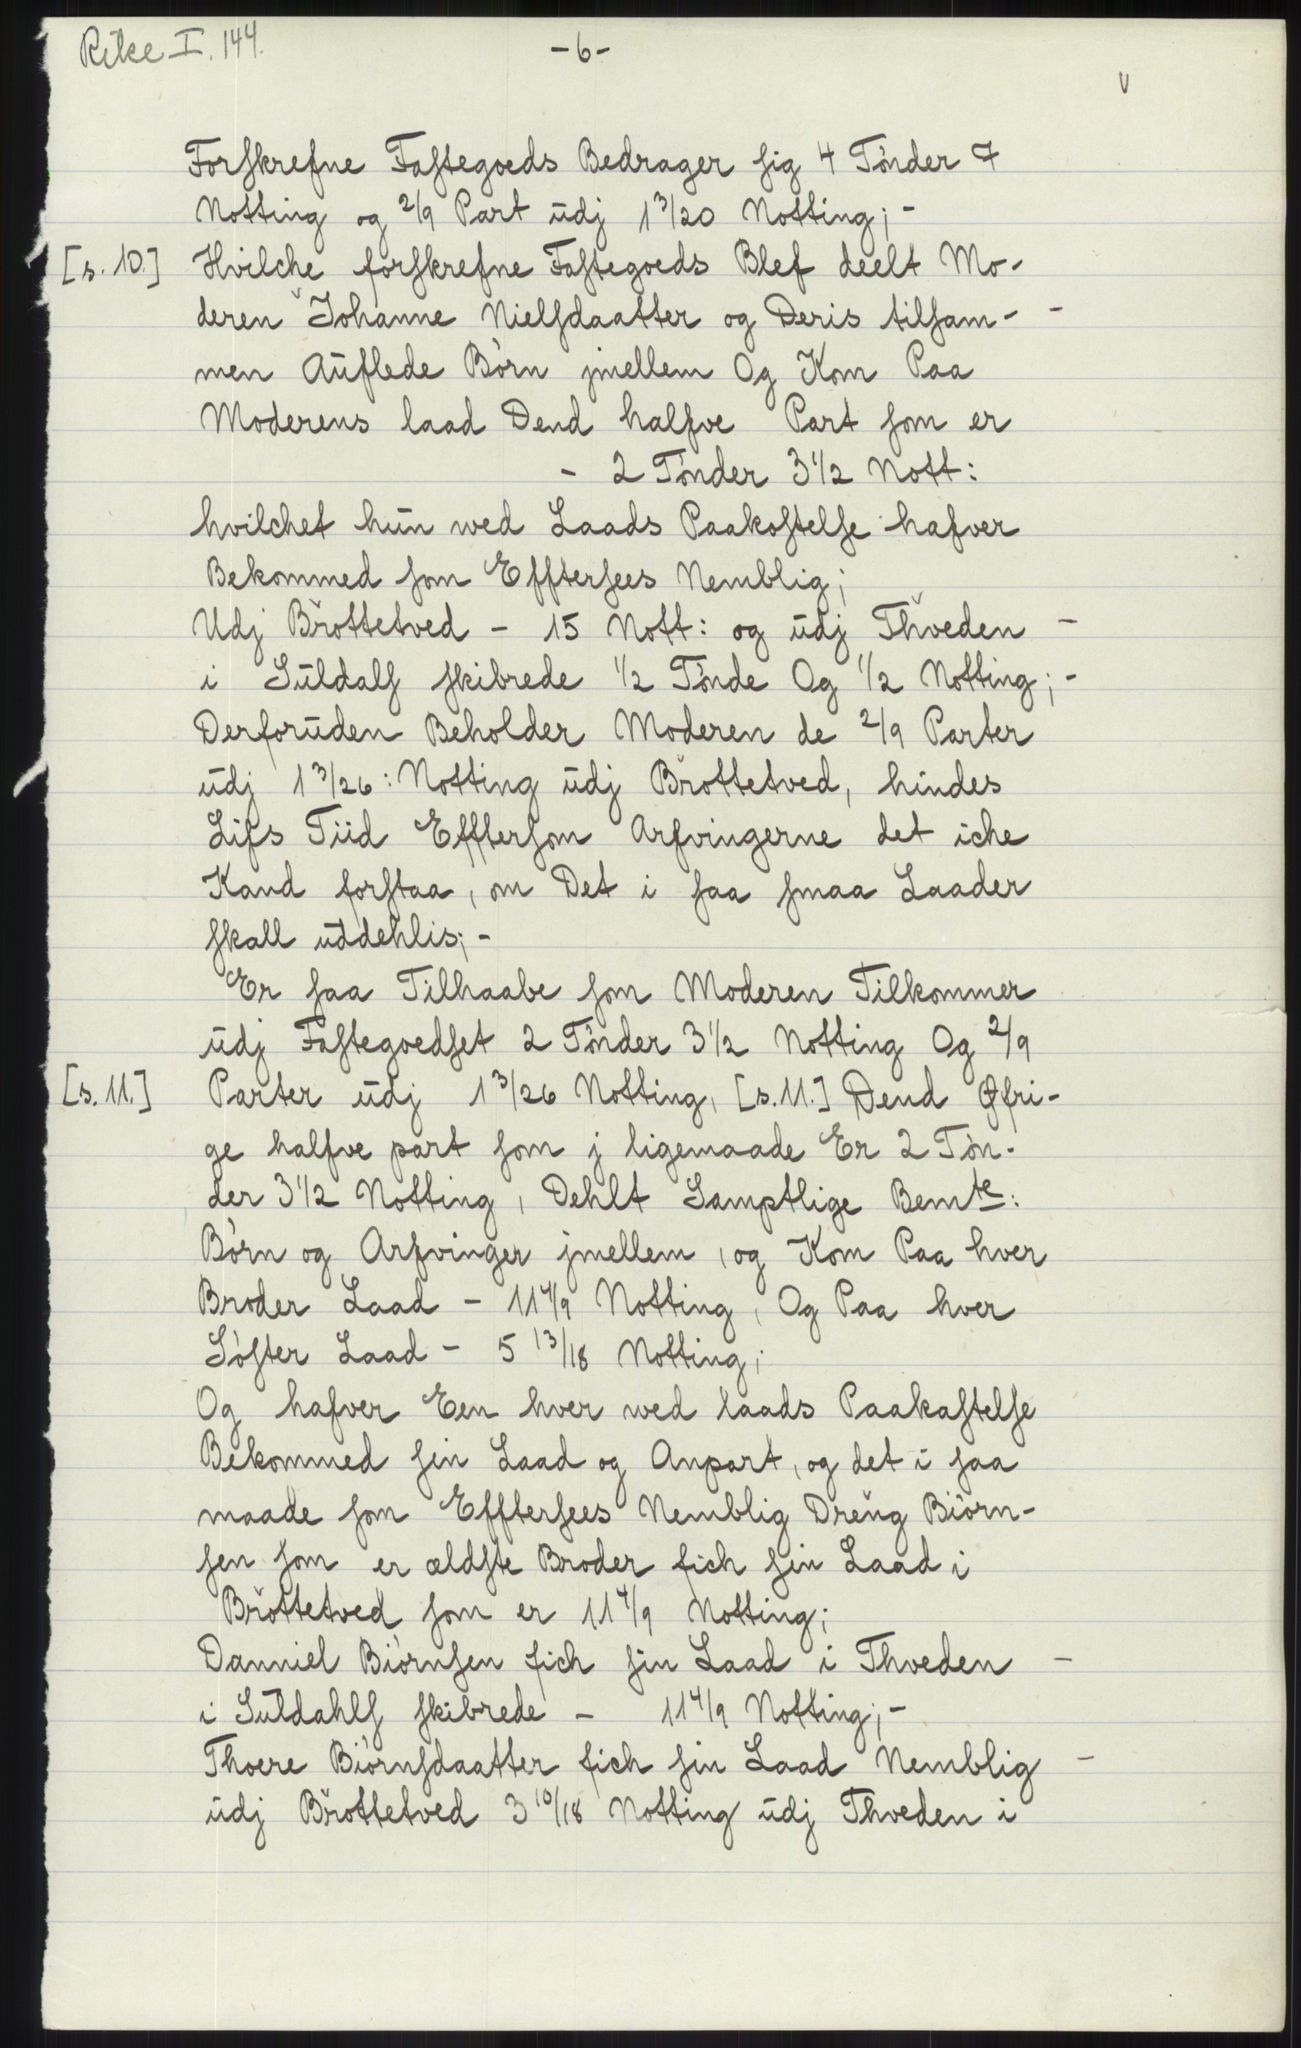 Rike I. 144.
-6-
Forskrefne Fastegoeds Bedrager sig 4 Tønder 7
Notting og 2/9 Part udj 1 3/20 Notting; -
[s. 10.] Hvilche forskrefne Fastegoeds Blef deelt Mo-
deren Johanne Nielsdaatter og Deris tilsam- -
men Auflede Børn jmellem Og Kom Paa
Moderens laad Dend halfve Part som er
- 2 Tønder 3 1/2 Nott:
hvilchet hun wed Laads Paakostelse hafver
Bekommed som Efftersees Nemblig;
Udj Brottetved - 15 Nott: og udj Thveden -
i Suldals skibrede 1/2 Tønde Og 1/2 Notting; -
Derforuden Beholder Moderen de 2/9 Parter
udj 1 3/26: Notting udj Brottetved, hindes
Lifs Tiid Efftersom Arfvingerne det iche
Kand forstaa, om Det i saa smaa Laader
skall uddehlis; -
Er saa Tilhaabe som Moderen Tilkommer
udj Fastegoedset 2 Tønder 3 1/2 Notting Og 2/9
[s. 11.] Parter udj 1 3/26 Notting, [s. 11.] Dend Øfri-
ge halfve part som j ligemaade Er 2 Tøn-
der 3 1/2 Notting, Dehlt Samptlige Bemte:
Børn og Arfvinger jmellem, og Kom Paa hver
Broder Laad - 11 4/9 Notting, Og Paa hver
Søster Laad - 5 13/18 Notting;
Og hafver Een hver wed laads Paakastelse
Bekommed sin Laad og Anpart, og det i saa
maade som Efftersees Nemblig Dreng Biørn-
sen som er ældste Broder fich sin Laad i
Brottetved som er 11 4/9 Notting;
Danniel Biørnsen fich sin Laad i Thveden -
i Suldahls skibrede - 11 4/9 Notting; -
Thoere Biørnsdaatter fich sin Laad Nemblig -
udj Brottetved 3 10/18 Notting udj Thveden i